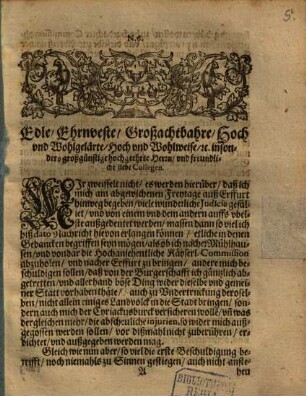 N. 6.
5.
Edle / Ehrnveste / Großachtbahre / Hoch
vnd Wohlgelärte / Hoch vnd Wohlweise / ꝛc. inson-
ders großgünstige hochgeehrte Herrn / vnd freundli-
che liebe Collegen.
WIe zweiffelt nicht / es werden hierüber / daß ich
mich am abgewichenen Freytage auß Erffurt
hinweg begeben / viele wunderliche Judicia gefell-
et / vnd von einem vnd dem andern auffs vbel-
ste außgedeutet werden / massen dann so viel ich
biß dato Nachricht hievon erlangen können / etliche in denen
Gedancken begriffen seyn mögen / als ob ich nacher Mühlhau-
sen / vnd von dar die Hochansehentliche Käyserl. Commission
abzuholen / vnd nacher Erffurt zu bringen / andere mich be-
schuldigen sollen / daß von der Burgerschafft ich gäntzlich ab-
getretten / vnd allerhand böse Ding wider dieselbe vnd gemei-
ner Stadt vorhaben thäte / auch zu Vnderdruckung derosel-
ben / nicht allein einiges Landvolck in die Stadt bringen / son-
dern auch mich der Cyriacksburck versicheren wolle / vñ was
dergleichen mehr / die abscheuliche injurien, so wider mich auß-
gegossen werden sollen / vor dißmahl nicht zuberühren / er-
dichtet / vnd außgegeben werden mag.
Gleich wie nun aber / so viel die erste Beschuldigung be-
trifft / noch niemahls zu Sinnen gestiegen / auch nicht anste-
A
hen
BIBLIOTHECA
REGIA